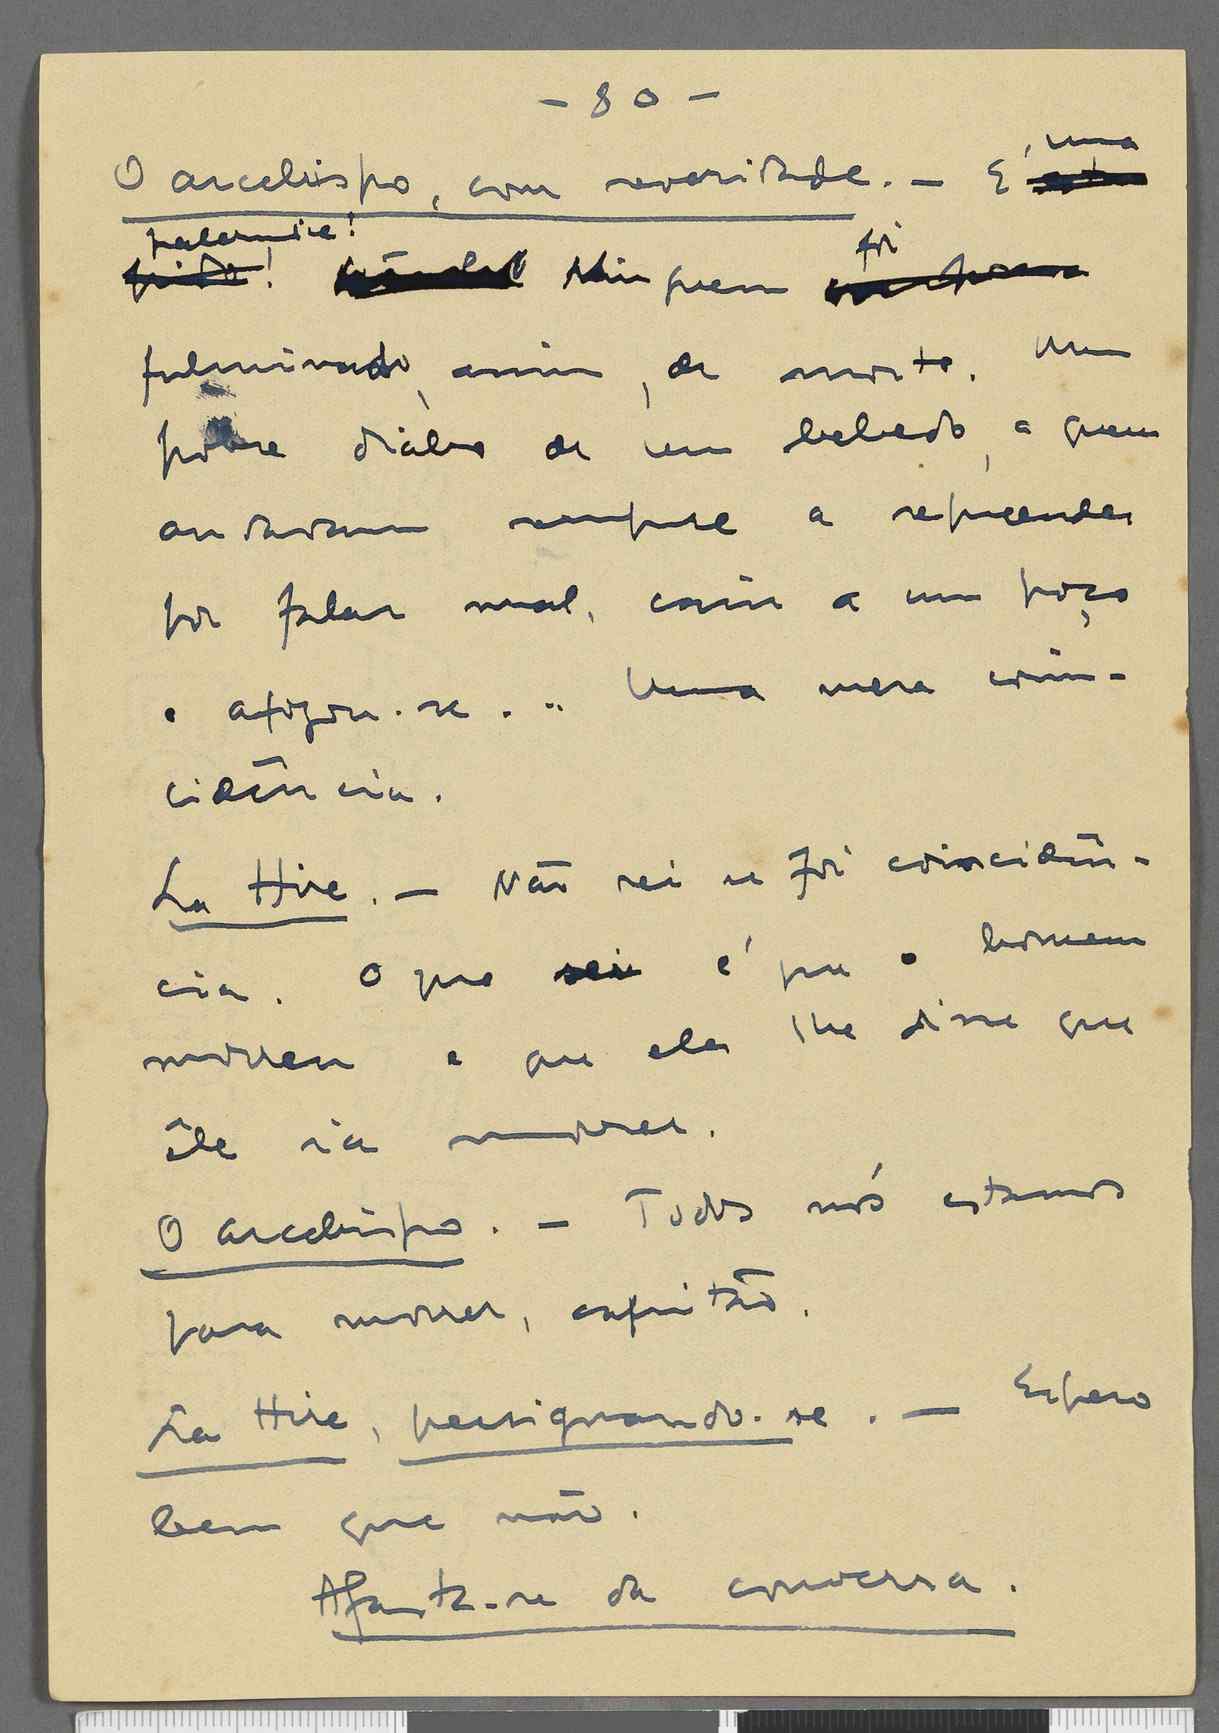 - 80 -
O arcebispo, com severidade. - É uma
palermice! Ninguem foi
fulminado, assim, de morte. Um
pobre diabo de um bebedo, a quem
andavam sempre a repreender
por falar mal, caiu a um poço
e afogou-se... Uma mera coin-
cidência.
La Hire. - Não sei se foi coincidên-
cia. O que sei é que o homem
morreu e que ela lhe disse que
êle ia morrer.
O arcebispo. - Todos nós estamos
para morrer, capitão.
La Hire, persignando-se. - Espero
bem que não.
Afasta-se da conversa.